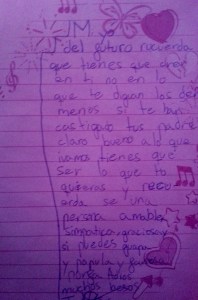 JM
del futuro recuerda
que tienes que creer
en ti no en lo
que te digan los de
menos si te han
castigado tus padre
claro bueno a lo que
vamos tienes que
ser lo que tu
quieras y recu
erda se una
persona amable
simpatica graciosa y
si puedes guapa
y popular y
Adios
muchos besos